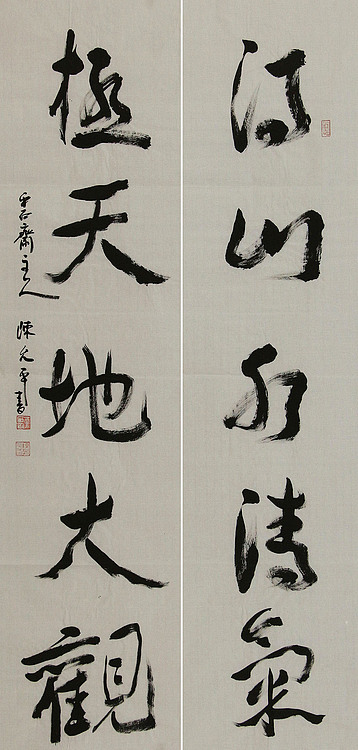 得山水清氣
極天地大觀
齋主人 陳允平書